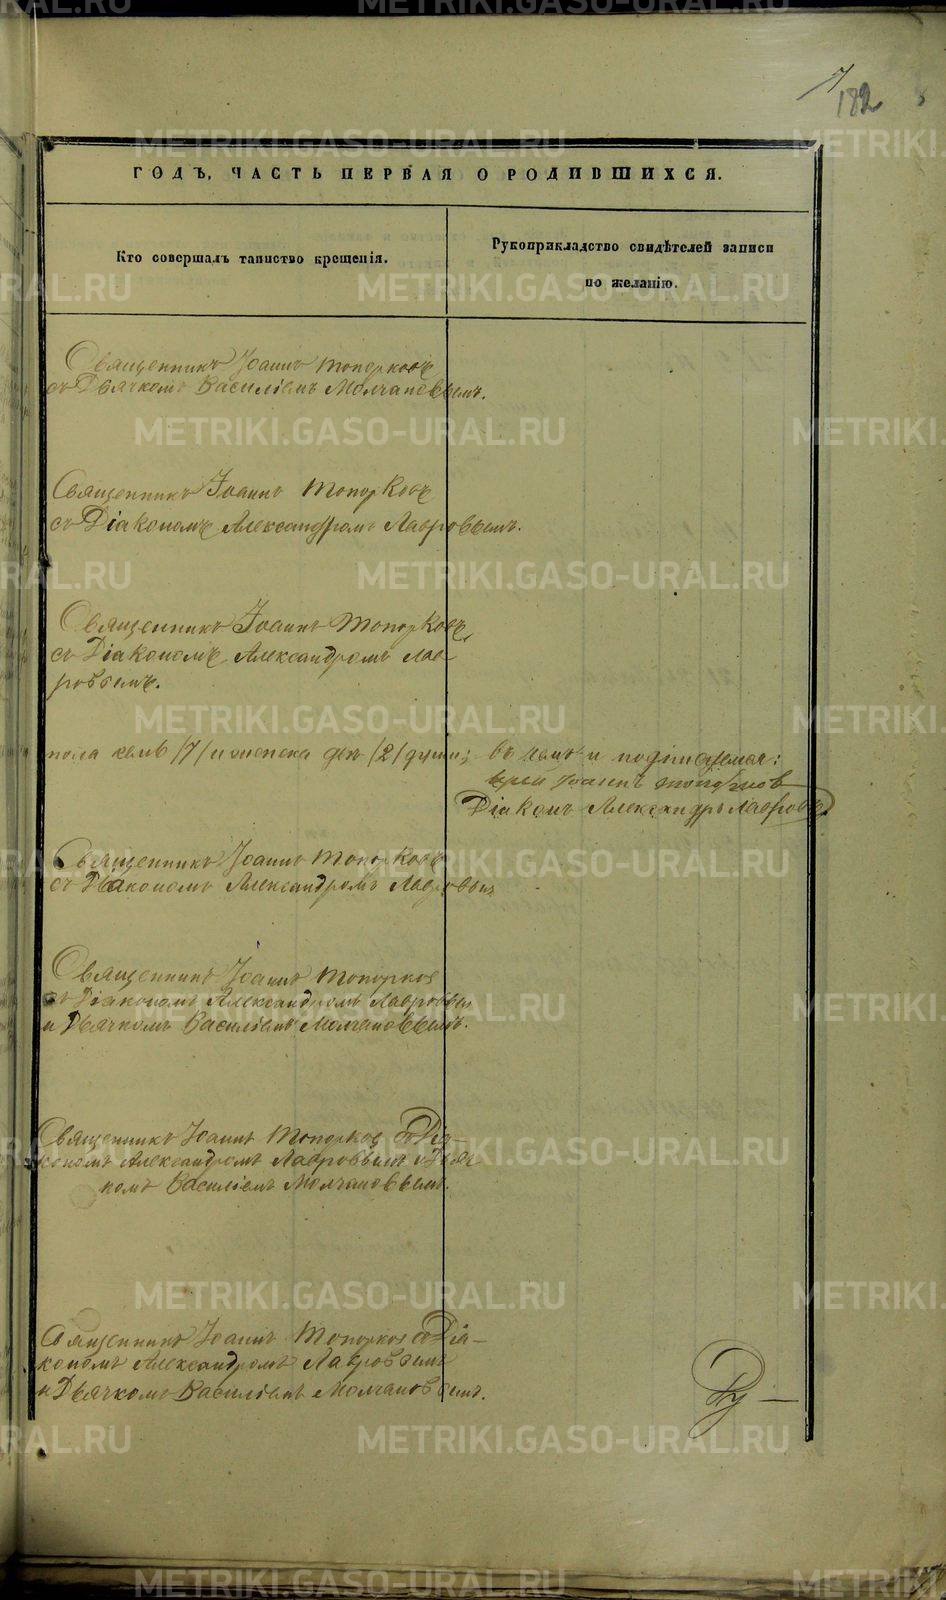 7
182
ГОДЪ, ЧАСТЬ ПЕРВАЯ О РОДИВШИХСЯ.
Кто совершалъ таинство крещенія.
Рукоприкладство свидѣтелей записи
по желанію.
Священникъ Іоаннъ Топорковъ
съ Дьячкомъ Василіемъ Молчановымъ.
Священникъ Іоаннъ Топорковъ
съ Діакономъ Александромъ Лавровымъ.
Священникъ Іоаннъ Топорковъ,
съ Діакономъ Александромъ Лав-
ровымъ.
пола семь /7/ и женска двѣ /2/ души;
въ чемъ и подписуемся:
Іоаннъ Топорков
Діаконъ Александръ Лавровъ.
Священникъ Іоаннъ Топорковъ
съ Діакономъ Александромъ Лавровым
Священникъ Іоаннъ Топорков
съ Діакономъ Александромъ Лавровым
и Дьячкомъ Василіемъ Молчановымъ.
Священникъ Іоаннъ Топорков съ Діа-
кономъ Александромъ Лавровымъ и Дьяч
комъ Василіемъ Молчановымъ.
Священникъ Іоаннъ Топорков съ Діа-
кономъ Александромъ Лавровымъ
и Дьячкомъ Василіемъ Молчановымъ.
METRIKI.GASO-URAL.RU